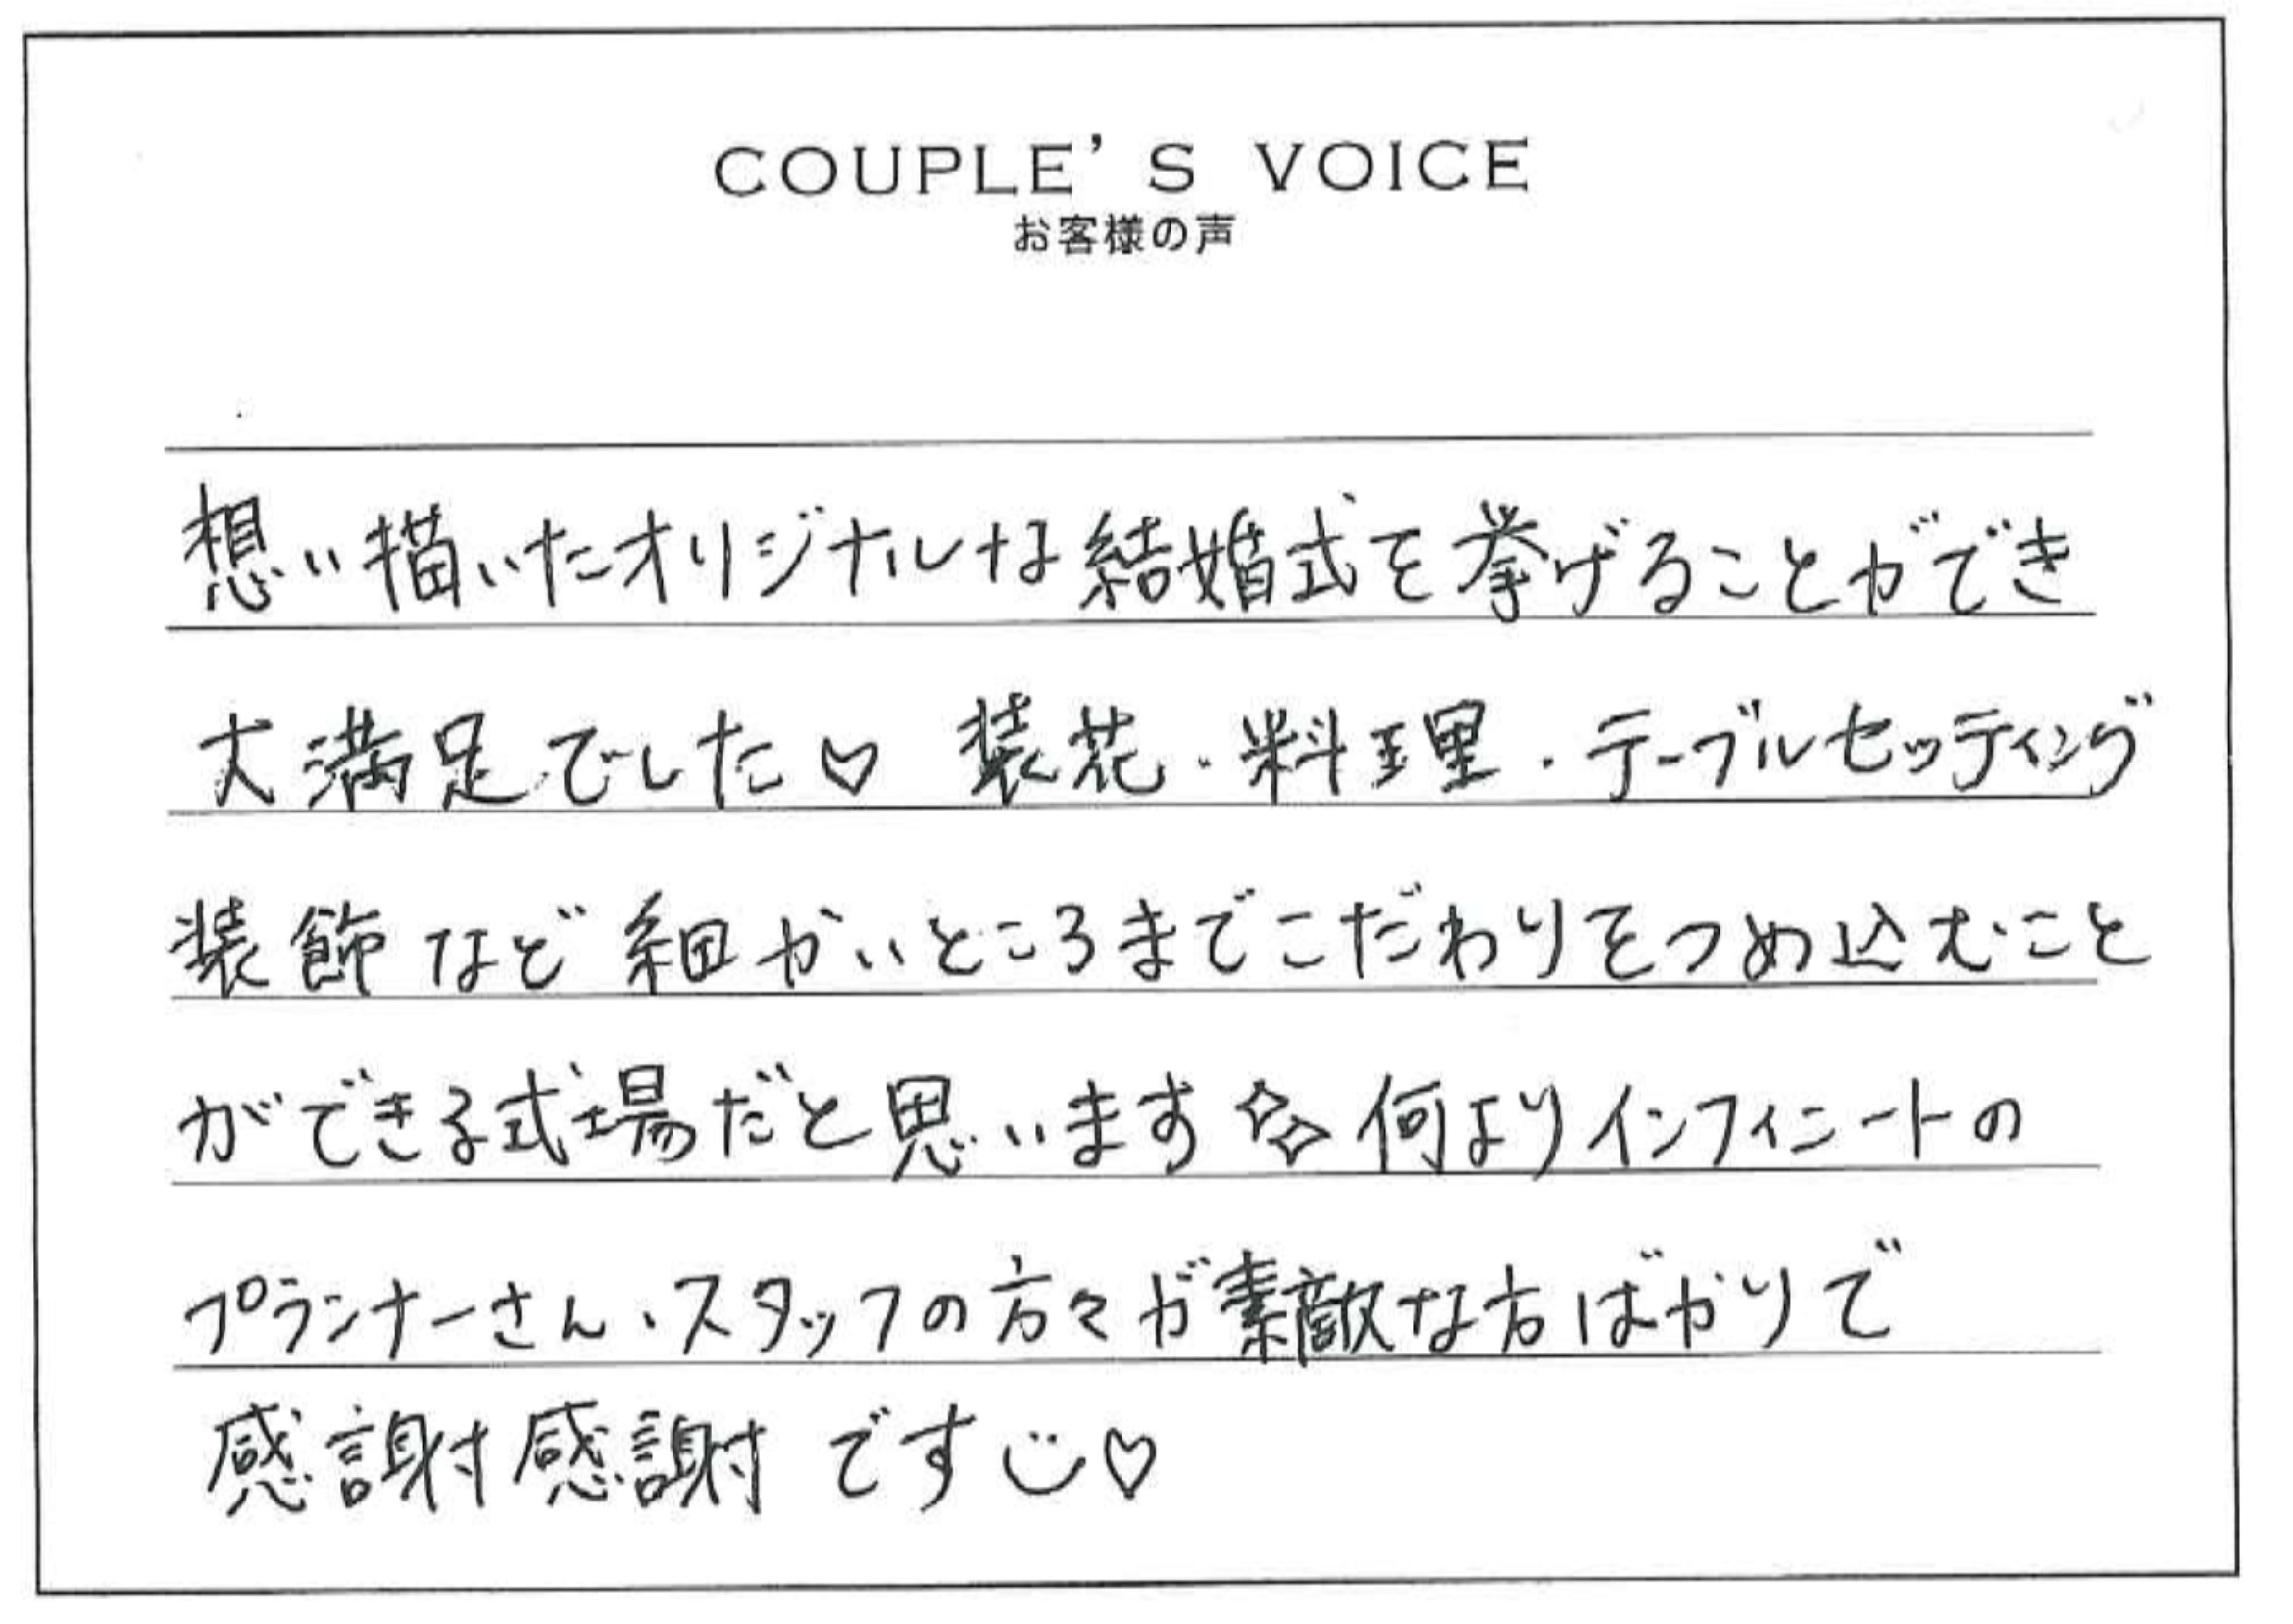 COUPLE'S VOICE
お客様の声
想い描いたオリジナルな結婚式を挙げることができ
大満足でした♡ 装花・料理・テーブルセッティング
装飾など細かいところまでこだわりをつめ込むこと
ができる式場だと思います✨何よりインフィニートの
プランナーさん、スタッフの方々が素敵な方ばかりで
感謝感謝です☺♡